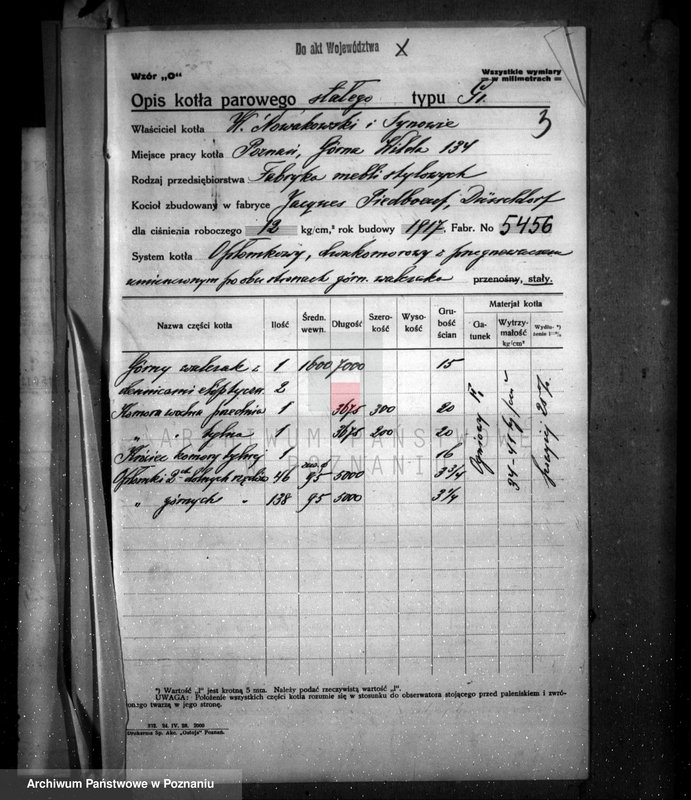 Do akt Województwa X
Wzór „O“
Wszystkie wymiary
w milimetrach
Opis kotła parowego stałego typu
3
Właściciel kotła W. Nowakowski i Synowie
Miejsce pracy kotła Poznań, Górna Wilda 134
Rodzaj przedsiębiorstwa Fabryka mebli stylowych
Kocioł zbudowany w fabryce Jacques Piedboeuf, Düsseldorf
dla ciśnienia roboczego 12 kg/cm,² rok budowy 1917. Fabr. No 5456
System kotła Opłomkowy, dwukomorowy z
umieszczonym po obu stronach górn. walczaka przenośny, stały.
Nazwa części kotła Ilość Średn. wewn. Długość Szerokość Wysokość Grubość ścian Materjał kotła
Gatunek Wytrzymałość kg/cm² Wydłużenie
Górny walczak z 1 1600 7000 15
dennicami 2
Komora wodna przednia 1 3675 300 20
„ „ tylna 1 3675 200 20
Króciec komory tylnej 1 16
Opłomki 2-ch dolnych rzędów 46 95 5000 3 3/4
„ górnych „ 138 95 5000 3 1/4
34-41 kg/cm²
25%
ARCHIWUM PAŃSTWOWE
W POZNANIU
*) Wartość „l“ jest krotną 5 mtn. Należy podać rzeczywistą wartość „l“.
UWAGA: Położenie wszystkich części kotła rozumie się w stosunku do obserwatora stojącego przed paleniskiem i zwró-
conego twarzą w jego stronę.
312. 24. IV. 28. 2000
Drukarnia Sp. Akc. „Ostoja“ Poznań.
Archiwum Państwowe w Poznaniu